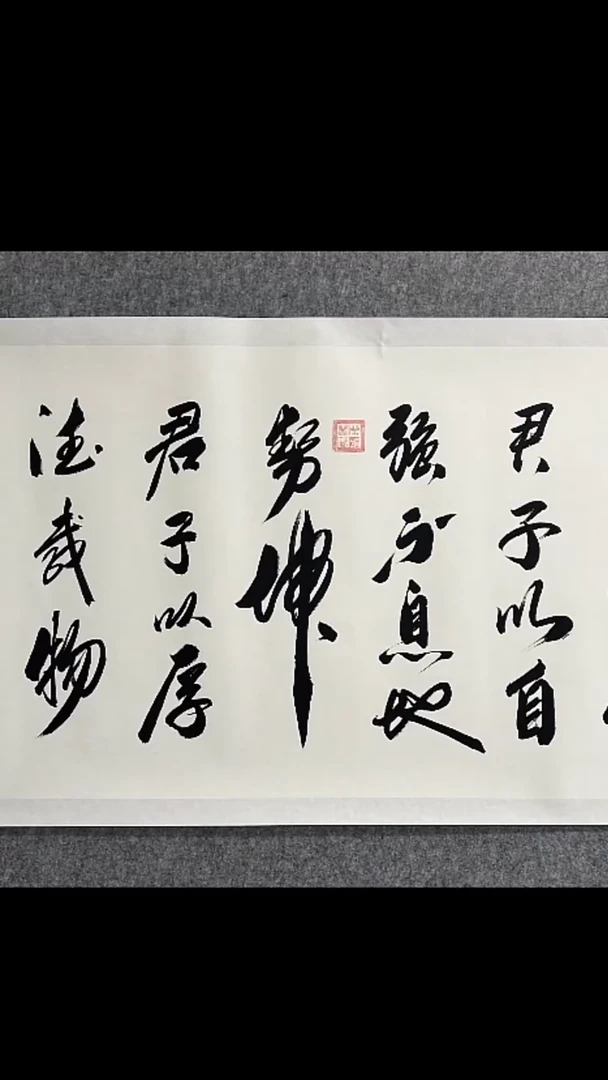 君子以自
强不息地
勢坤
君子以厚
德載物